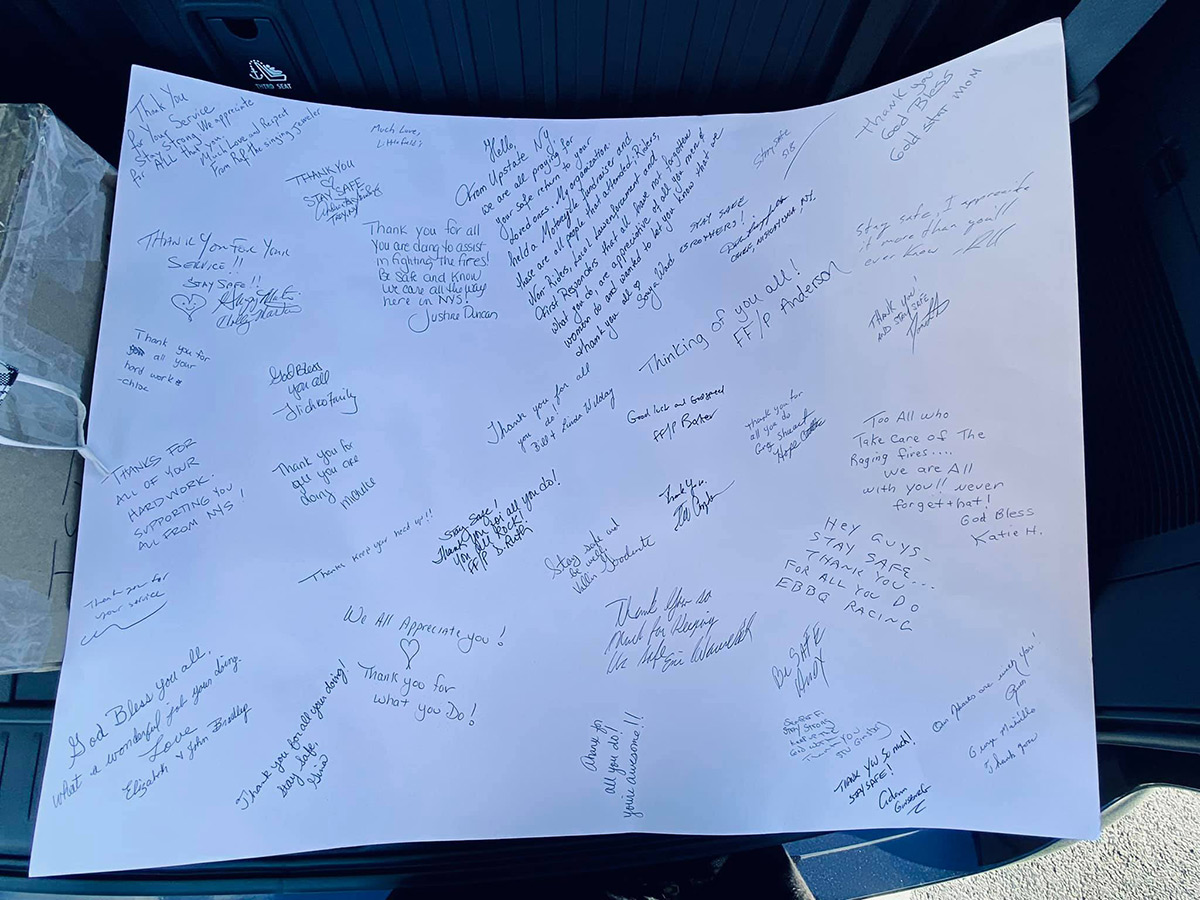 THIRD SEAT
Thank You
for Your Service
Stay Strong We appreciate
for All that you do
Much Love and Respect
From Raf the singing jeweler
Much Love,
Littlefield's
THANK YOU
STAY SAFE
Troy, NY
Hello,
From Upstate NY,
we are all praying for
your safe return to your
loved ones. My organization
held a Motorcycle fundraiser and
these are all people that attended. Riders,
Non Riders, Local Law enforcement and
First Responders that all have not forgotten
what you do, are appreciative of all you men &
women do and wanted to let you know that we
thank you all
Sonja Ward
Stay safe
thank you
God Bless
Gold Star Mom
STAY SAFE
BROTHERS!
CHIEF, NISKAYUNA, NY.
Stay safe, I appreciate
it more than you'll
ever know
THANK YOU FOR YOUR
SERVICE!!
STAY SAFE!!
Martin
Holly Martin
Thank you for all
You are doing to assist
in fighting the fires!
Be Safe and Know
We care all the way
here in NYS!
Justine Duncan
Thinking of you all!
FF/P Anderson
THANK YOU
AND STAY SAFE
Thank you for
all your
hard work
-Chloe
God Bless
you all
Family
Thank you for all
you do!
Bill + Linda Wilday
Good luck and Godspeed
FF/P Baker
thank you for
all you do
Greg Stewart
Hope
Too All who
Take care of The
Raging fires....
we are All
with you!! Never
forget that!
God Bless
Katie H.
THANKS FOR
ALL OF YOUR
HARDWORK.
SUPPORTING YOU
ALL FROM NYS!
Thank you for
all you are
doing
michelle
Thanks keep your head up!!
STAY SAFE!
Thank you for all you do!
you all ROCK!
FF/P D. Austin
Thank you.
Stay safe and
be well
HEY GUYS-
STAY SAFE
THANK YOU...
FOR ALL YOU DO
EBBQ RACING
Thank you for
your service
We All Appreciate you!
Thank you for
what you Do!
Thank You so
Much for Keeping
Us safe
Eric
BE SAFE
ANDY
God Bless you all,
what a wonderful job your doing.
Love
Elizabeth + John
Thank you for all your doing!
stay safe,
Gina
Thank you for
all you do!!
you're awesome!!
STAY STRONG
THANK YOU SO much!
STAY SAFE!
Adam
Our hearts are with you!
Thank you